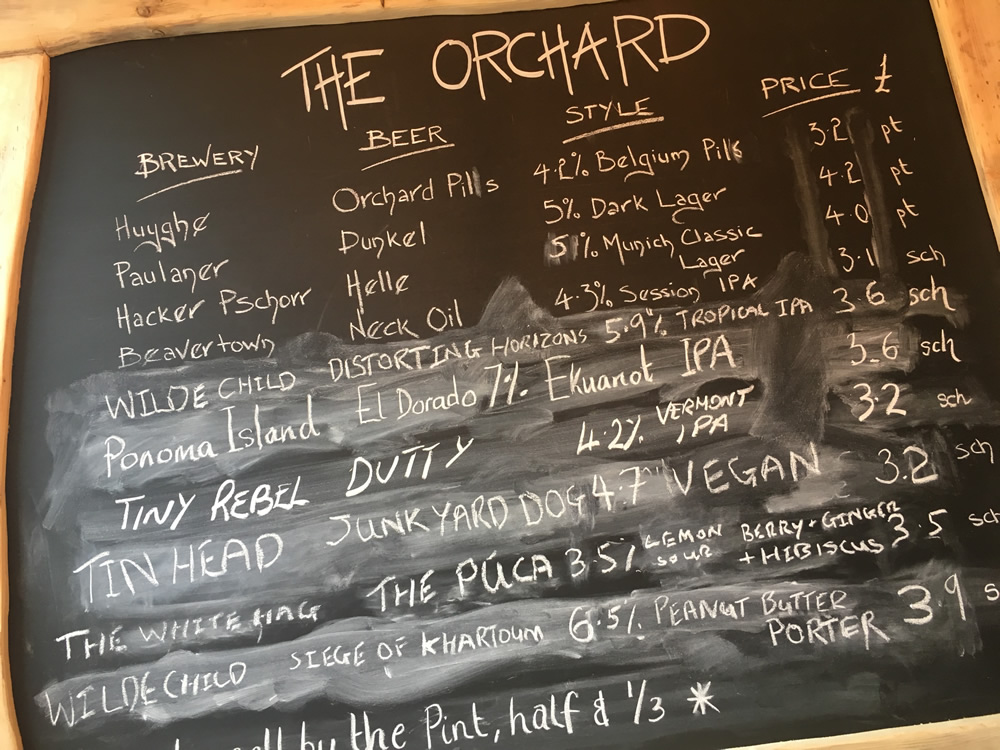 THE ORCHARD
BREWERY BEER STYLE PRICE £
Huyghe Orchard Pills 4.2% Belgium Pils 3.2 pt
Paulaner Dunkel 5% Dark Lager 4.2 pt
Hacker Pschorr Helle 5.1% Munich Classic Lager 4.0 pt
Beavertown Neck Oil 4.3% Session IPA 3.1 sch
WILDE CHILD DISTORTING HORIZONS 5.9% TROPICAL IPA 3.6 sch
Ponoma Island El Dorado 7% Ekuanot IPA 3.6 sch
TINY REBEL DUTTY 4.2% VERMONT IPA 3.2 sch
TIN HEAD JUNKYARD DOG 4.7 VEGAN 3.2 sch
THE WHITE HAG THE PÚCA 3.5% LEMON SOUR BERRY + GINGER + HIBISCUS 3.5 sc
WILDE CHILD SIEGE OF KHARTOUM 6.5% PEANUT BUTTER PORTER 3.9 s
by the Pint, half & 1/3 *